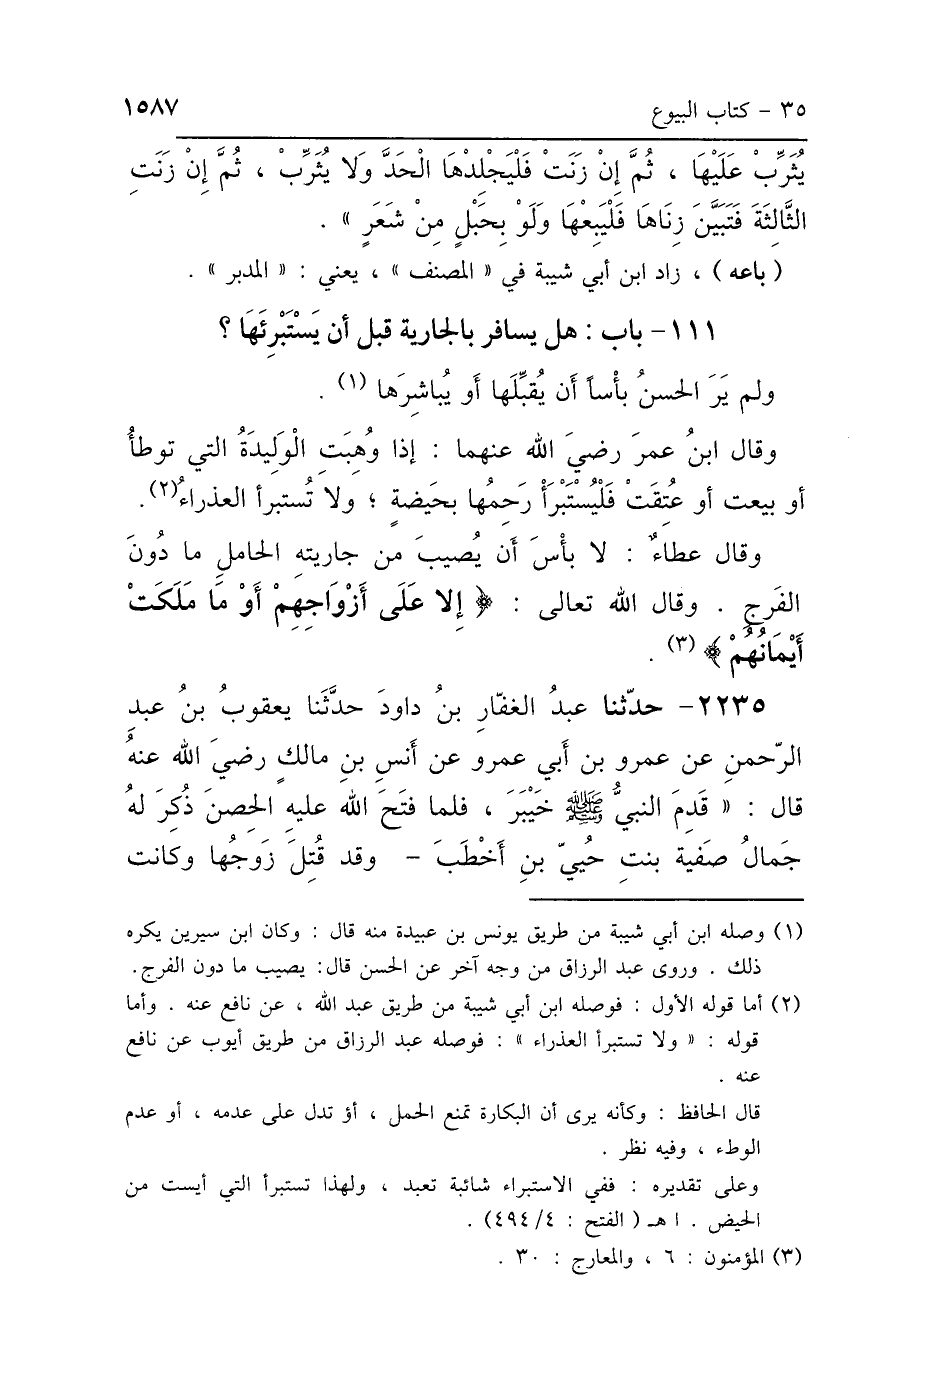 ٣٥ - كتاب البيوع ١٥٨٧
يُثَرِّبْ عَلَيْهَا ، ثُمَّ إِنْ زَنَتْ فَلْيَجْلِدْهَا الْحَدَّ وَلَا يُثَرِّبْ ، ثُمَّ إِنْ زَنَتِ
الثَّالِثَةَ فَتَبَيَّنَ زِنَاهَا فَلْيَبِعْهَا وَلَوْ بِحَبْلٍ مِنْ شَعَرٍ » .
( باعه ) ، زاد ابن أبي شيبة في « المصنف » ، يعني : « المدبر » .
١١١- باب : هل يسافر بالجارية قبل أن يَسْتَبْرِئَهَا ؟
ولم يَرَ الحسنُ بأساً أن يُقبِّلَها أو يُباشرَها (١) .
وقال ابنُ عمرَ رضيَ الله عنهما : إذا وُهِبَتِ الْوَلِيدَةُ التي توطأُ
أو بيعت أو عُتِقَتْ فَلْيُسْتَبْرَأْ رَحِمُها بحَيضةٍ ؛ ولا تُستبرأ العذراءُ(٢).
وقال عطاءٌ : لا بأسَ أن يُصيبَ من جاريتِه الحاملِ ما دُونَ
الفَرجِ . وقال الله تعالى : ﴿ إِلا عَلَى أَزْوَاجِهِمْ أَوْ مَا مَلَكَتْ
أَيْمَانُهُمْ ﴾ (٣) .
٢٢٣٥- حدّثنا عبدُ الغفّارِ بنُ داودَ حدَّثَنا يعقوبُ بنُ عبدِ
الرّحمنِ عن عمرو بن أبي عمرو عن أنسِ بنِ مالكٍ رضيَ الله عنهُ
قال : « قَدِمَ النبيُّ ﷺ خَيْبَرَ ، فلما فتَحَ الله عليهِ الحِصنَ ذُكِرَ لهُ
جَمالُ صَفية بنتِ حُييِّ بنِ أَخْطَبَ - وقد قُتِلَ زَوجُها وكانت
(١) وصله ابن أبي شيبة من طريق يونس بن عبيدة منه قال : وكان ابن سيرين يكره
ذلك . وروى عبد الرزاق من وجه آخر عن الحسن قال: يصيب ما دون الفرج.
(٢) أما قوله الأول : فوصله ابن أبي شيبة من طريق عبد الله ، عن نافع عنه . وأما
قوله : « ولا تستبرأ العذراء » : فوصله عبد الرزاق من طريق أيوب عن نافع
عنه .
قال الحافظ : وكأنه يرى أن البكارة تمنع الحمل ، أؤ تدل على عدمه ، أو عدم
الوطء ، وفيه نظر .
وعلى تقديره : ففي الاستبراء شائبة تعبد ، ولهذا تستبرأ التي أيست من
الحيض . ا هـ ( الفتح : ٤/ ٤٩٤) .
(٣) المؤمنون : ٦ ، والمعارج : ٣٠ .